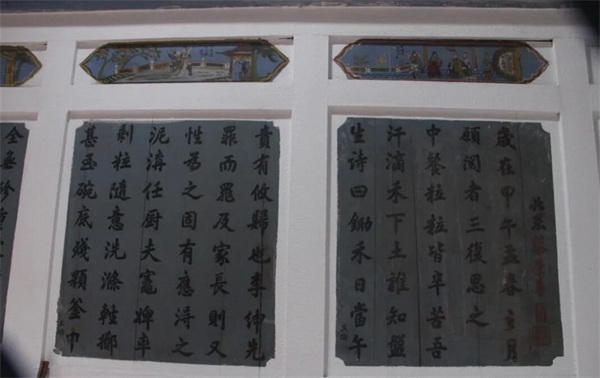 全無珍
甚至碗底殘顆釜中
剩粒隨意洗滌輕擲
泥溝任厨夫竈婢率
性為之固有應得之
罪而罪及家長則又
責有攸歸也李紳先
生詩曰鋤禾日當午
汗滴禾下土誰知盤
中餐粒粒皆辛苦吾
願閱者三復思之
歲在甲午孟春之月